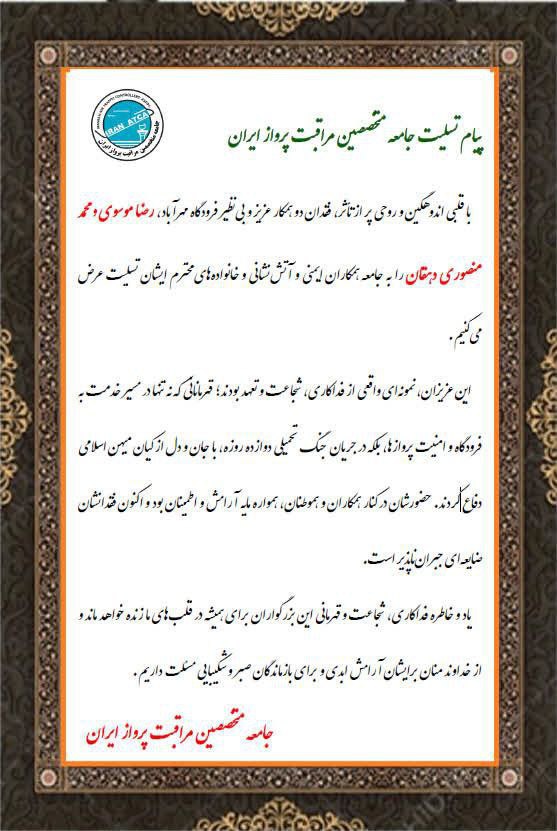 IRAN ATCA
پیام تسلیت جامعه متخصصین مراقبت پرواز ایران
با قلبی اندوهگین و روحی پر از تاثر، فقدان دو همکار عزیز و بی نظیر فرودگاه مهرآباد، رضا موسوی و محمد
منصوری دهقان را به جامعه همکاران ایمنی و آتش نشانی و خانواده های محترم ایشان تسلیت عرض
می کنیم .
این عزیزان، نمونه ای واقعی از فداکاری، شجاعت و تعهد بودند؛ قهرمانانی که نه تنها در مسیر خدمت به
فرودگاه و امنیت پروازها، بلکه در جریان جنگ تحمیلی دوازده روزه، با جان و دل از کیان میهن اسلامی
دفاع کردند. حضورشان در کنار همکاران و هموطنان، همواره مایه آرامش و اطمینان بود و اکنون فقدانشان
ضایعه ای جبران ناپذیر است.
یاد و خاطره فداکاری، شجاعت و قهرمانی این بزرگواران برای همیشه در قلب های ما زنده خواهد ماند و
از خداوند منان برایشان آرامش ابدی و برای بازماندگان صبر و شکیبایی مسئلت داریم .
جامعه متخصصین مراقبت پرواز ایران